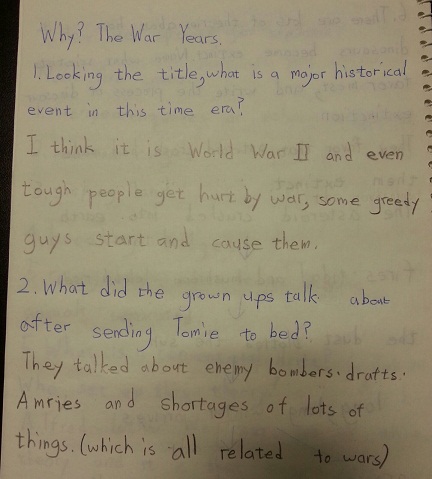 Why? The War Years.
1. Looking the title, what is a major historical
event in this time era?
I think it is World War II and even
tough people get hurt by war, some greedy
guys start and cause them.
2. What did the grown ups talk about
after sending Tomie to bed?
They talked about enemy bombers. drafts.
Amries and shortages of lots of
things. (which is all related to wars)